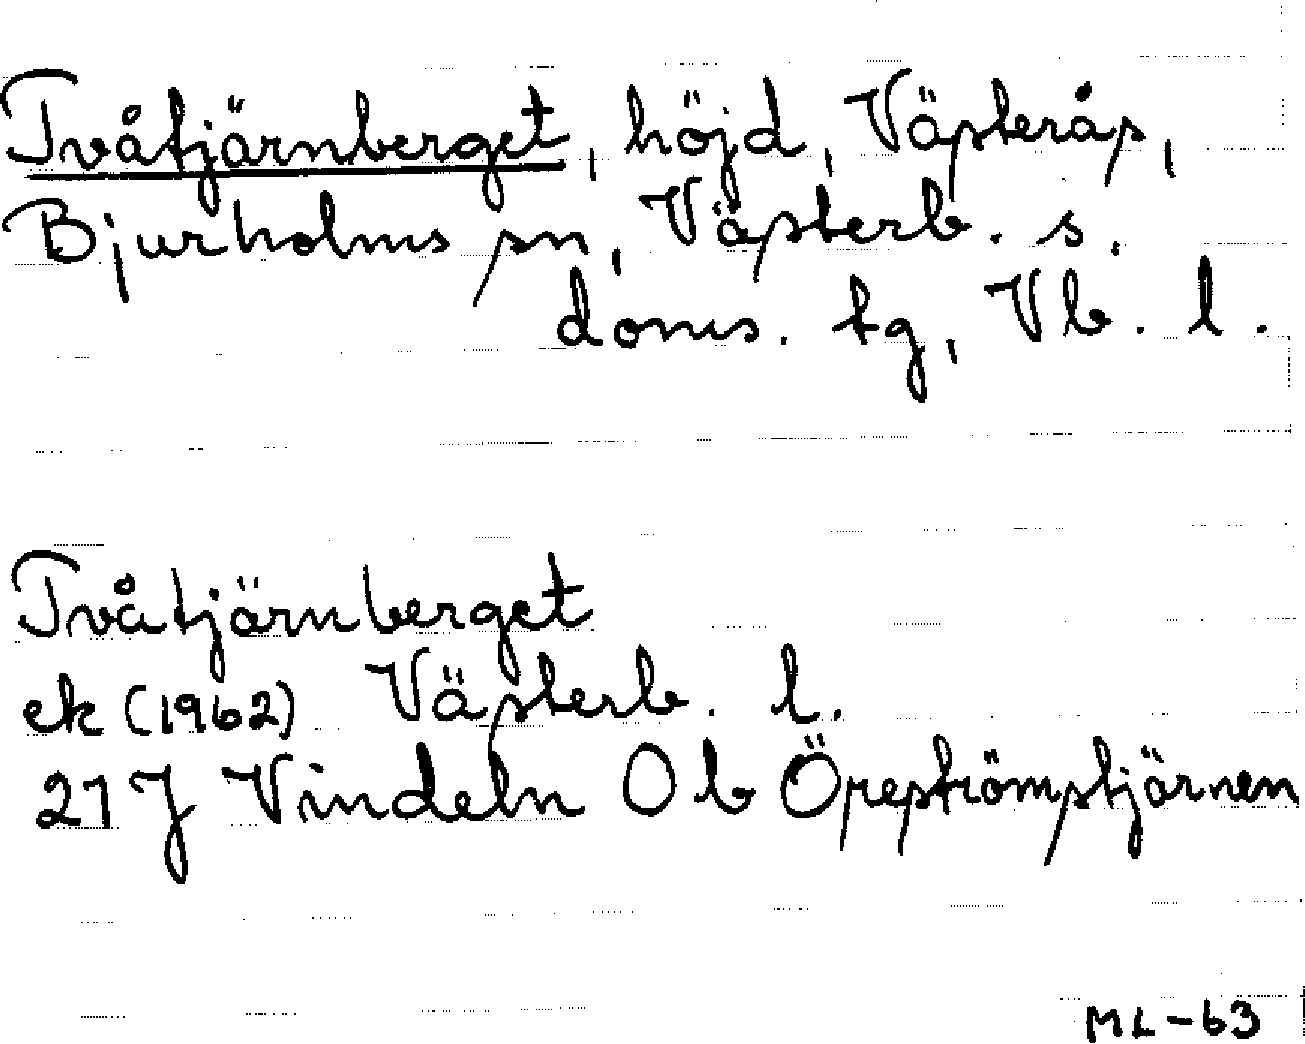 Tvåtjärnberget, höjd, Västerås,
Bjurholms sn, Västerb. s.
doms. tg, Vb. l.
Tvåtjärnberget
ek (1962) Västerb. l.
21 J Vindeln 0 b Öreströmstjärnen
ML-63